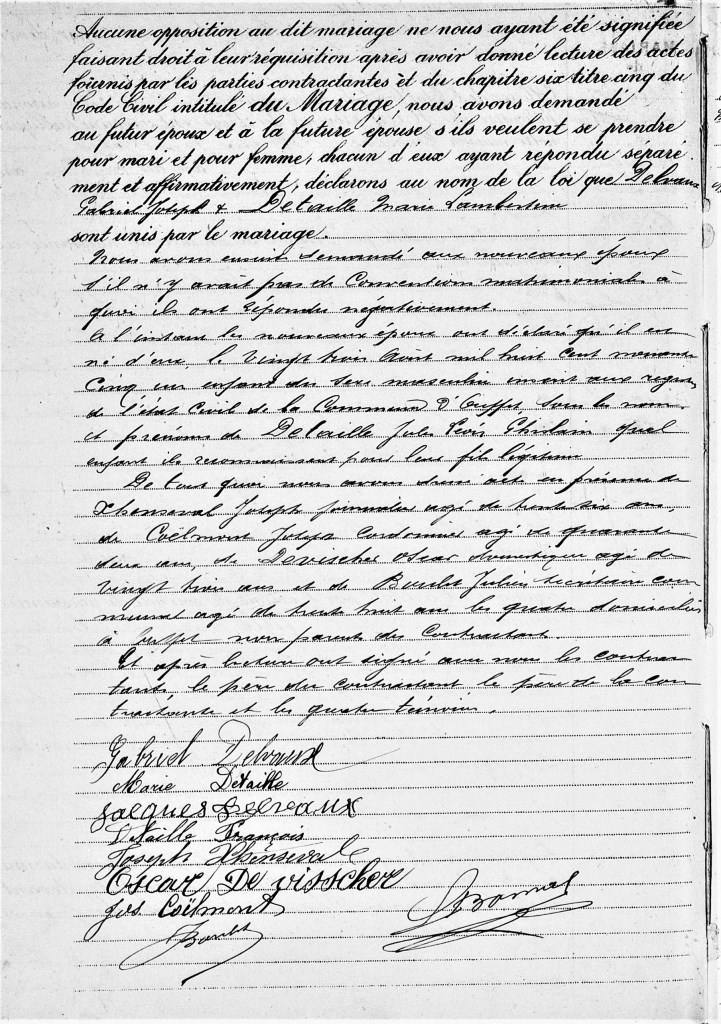 Aucune opposition au dit mariage ne nous ayant été signifiée
faisant droit à leur réquisition après avoir donné lecture des actes
fournis par les parties contractantes et du chapitre six titre cinq du
Code Civil intitulé du Mariage, nous avons demandé
au futur époux et à la future épouse s'ils veulent se prendre
pour mari et pour femme, chacun d'eux ayant répondu séparé
ment et affirmativement, déclarons au nom de la loi que Delvaux
Gabriel Joseph & Detaille Marie Lambertine
sont unis par le mariage.
Nous avons ensuite demandé aux nouveaux époux
s'il n'y avait pas de Conventions matrimoniales à
quoi ils ont répondu négativement.
A l'instant les nouveaux époux ont déclaré qu'il est
né d'eux, le vingt trois Août mil huit cent nonante
cinq un enfant du sexe masculin inscrit aux registres
de l'état Civil de la Commune d'Ouffet sous les noms
et prénoms de Detaille Jules Ghislain quel
enfant ils reconnaissent pour leur fils légitime
De tout quoi nous avons dressé acte en présence de
Xhenseval Joseph journalier agé de trente six ans,
de Coëlmont Joseph Cordonnier agé de quarante
deux ans, de Devischer Oscar domestique agé de
vingt trois ans et de Boulet Julien secrétaire com
munal agé de trente huit ans les quatre domiciliés
à Ouffet non parents des Contractants.
Et après lecture ont signé avec nous les contrac
tants, le père du contractant le père de la con
tractante et les quatre témoins.
Gabriel Delvaux
Marie Detaille
Jacques Delvaux
Detaille François
Joseph Xhenseval
Oscar De visscher
Jos. Coëlmont
Boulet